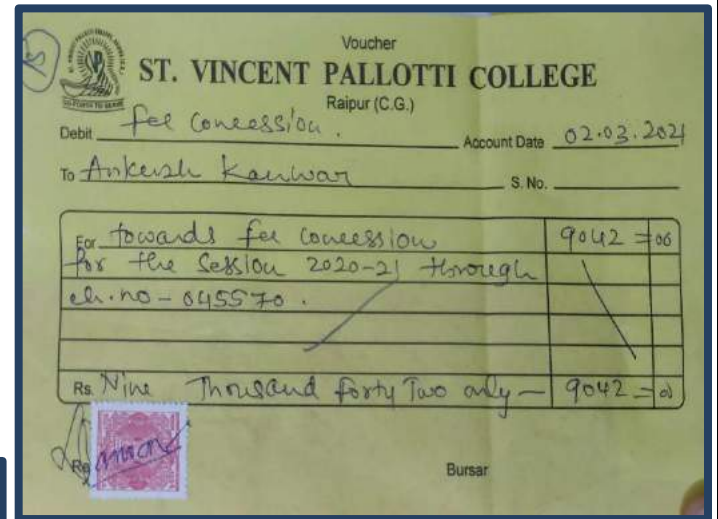 Voucher
ST. VINCENT PALLOTTI COLLEGE
Raipur (C.G.)
Debit fee concession. Account Date 02.03.2021
To Ankush Kanwar S. No.
For towards fee concession 9042 = 00
for the Session 2020-21 through
ch. no - 045570.
Rs. Nine Thousand forty Two only — 9042 = 00
Bursar